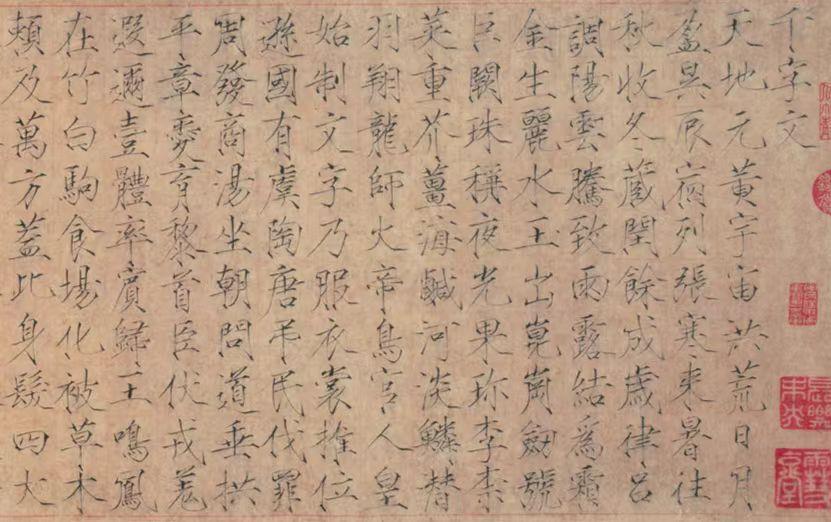 千字文
天地元黃宇宙洪荒日月
盈昃辰宿列張寒来暑往
秋收冬藏閏餘成歲律呂
調陽雲騰致雨露結為霜
金生麗水玉出崑崗劒號
巨闕珠稱夜光果珎李柰
菜重芥薑海鹹河淡鱗潛
羽翔龍師火帝鳥官人皇
始制文字乃服衣裳推位
遜國有虞陶唐弔民伐罪
周發商湯坐朝問道垂拱
平章愛育黎首臣伏戎羌
遐邇壹體率賓歸王鳴鳳
在竹白駒食場化被草木
賴及萬方蓋此身髮四大